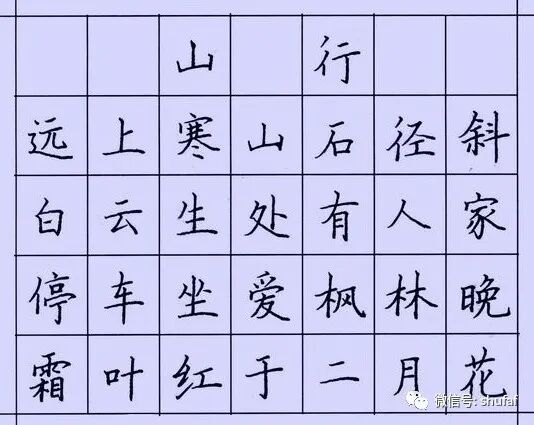 山行
远上寒山石径斜
白云生处有人家
停车坐爱枫林晚
霜叶红于二月花
微信号: shufai